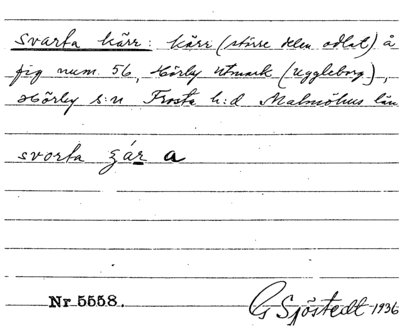 svarta kärr: kärr (större delen odlat) å
fig num. 56, Hörby utmark (Uggleborg),
Hörby s:n Frosta h:d Malmöhus län
svorta a
Nr 5558. G Sjöstedt 1936